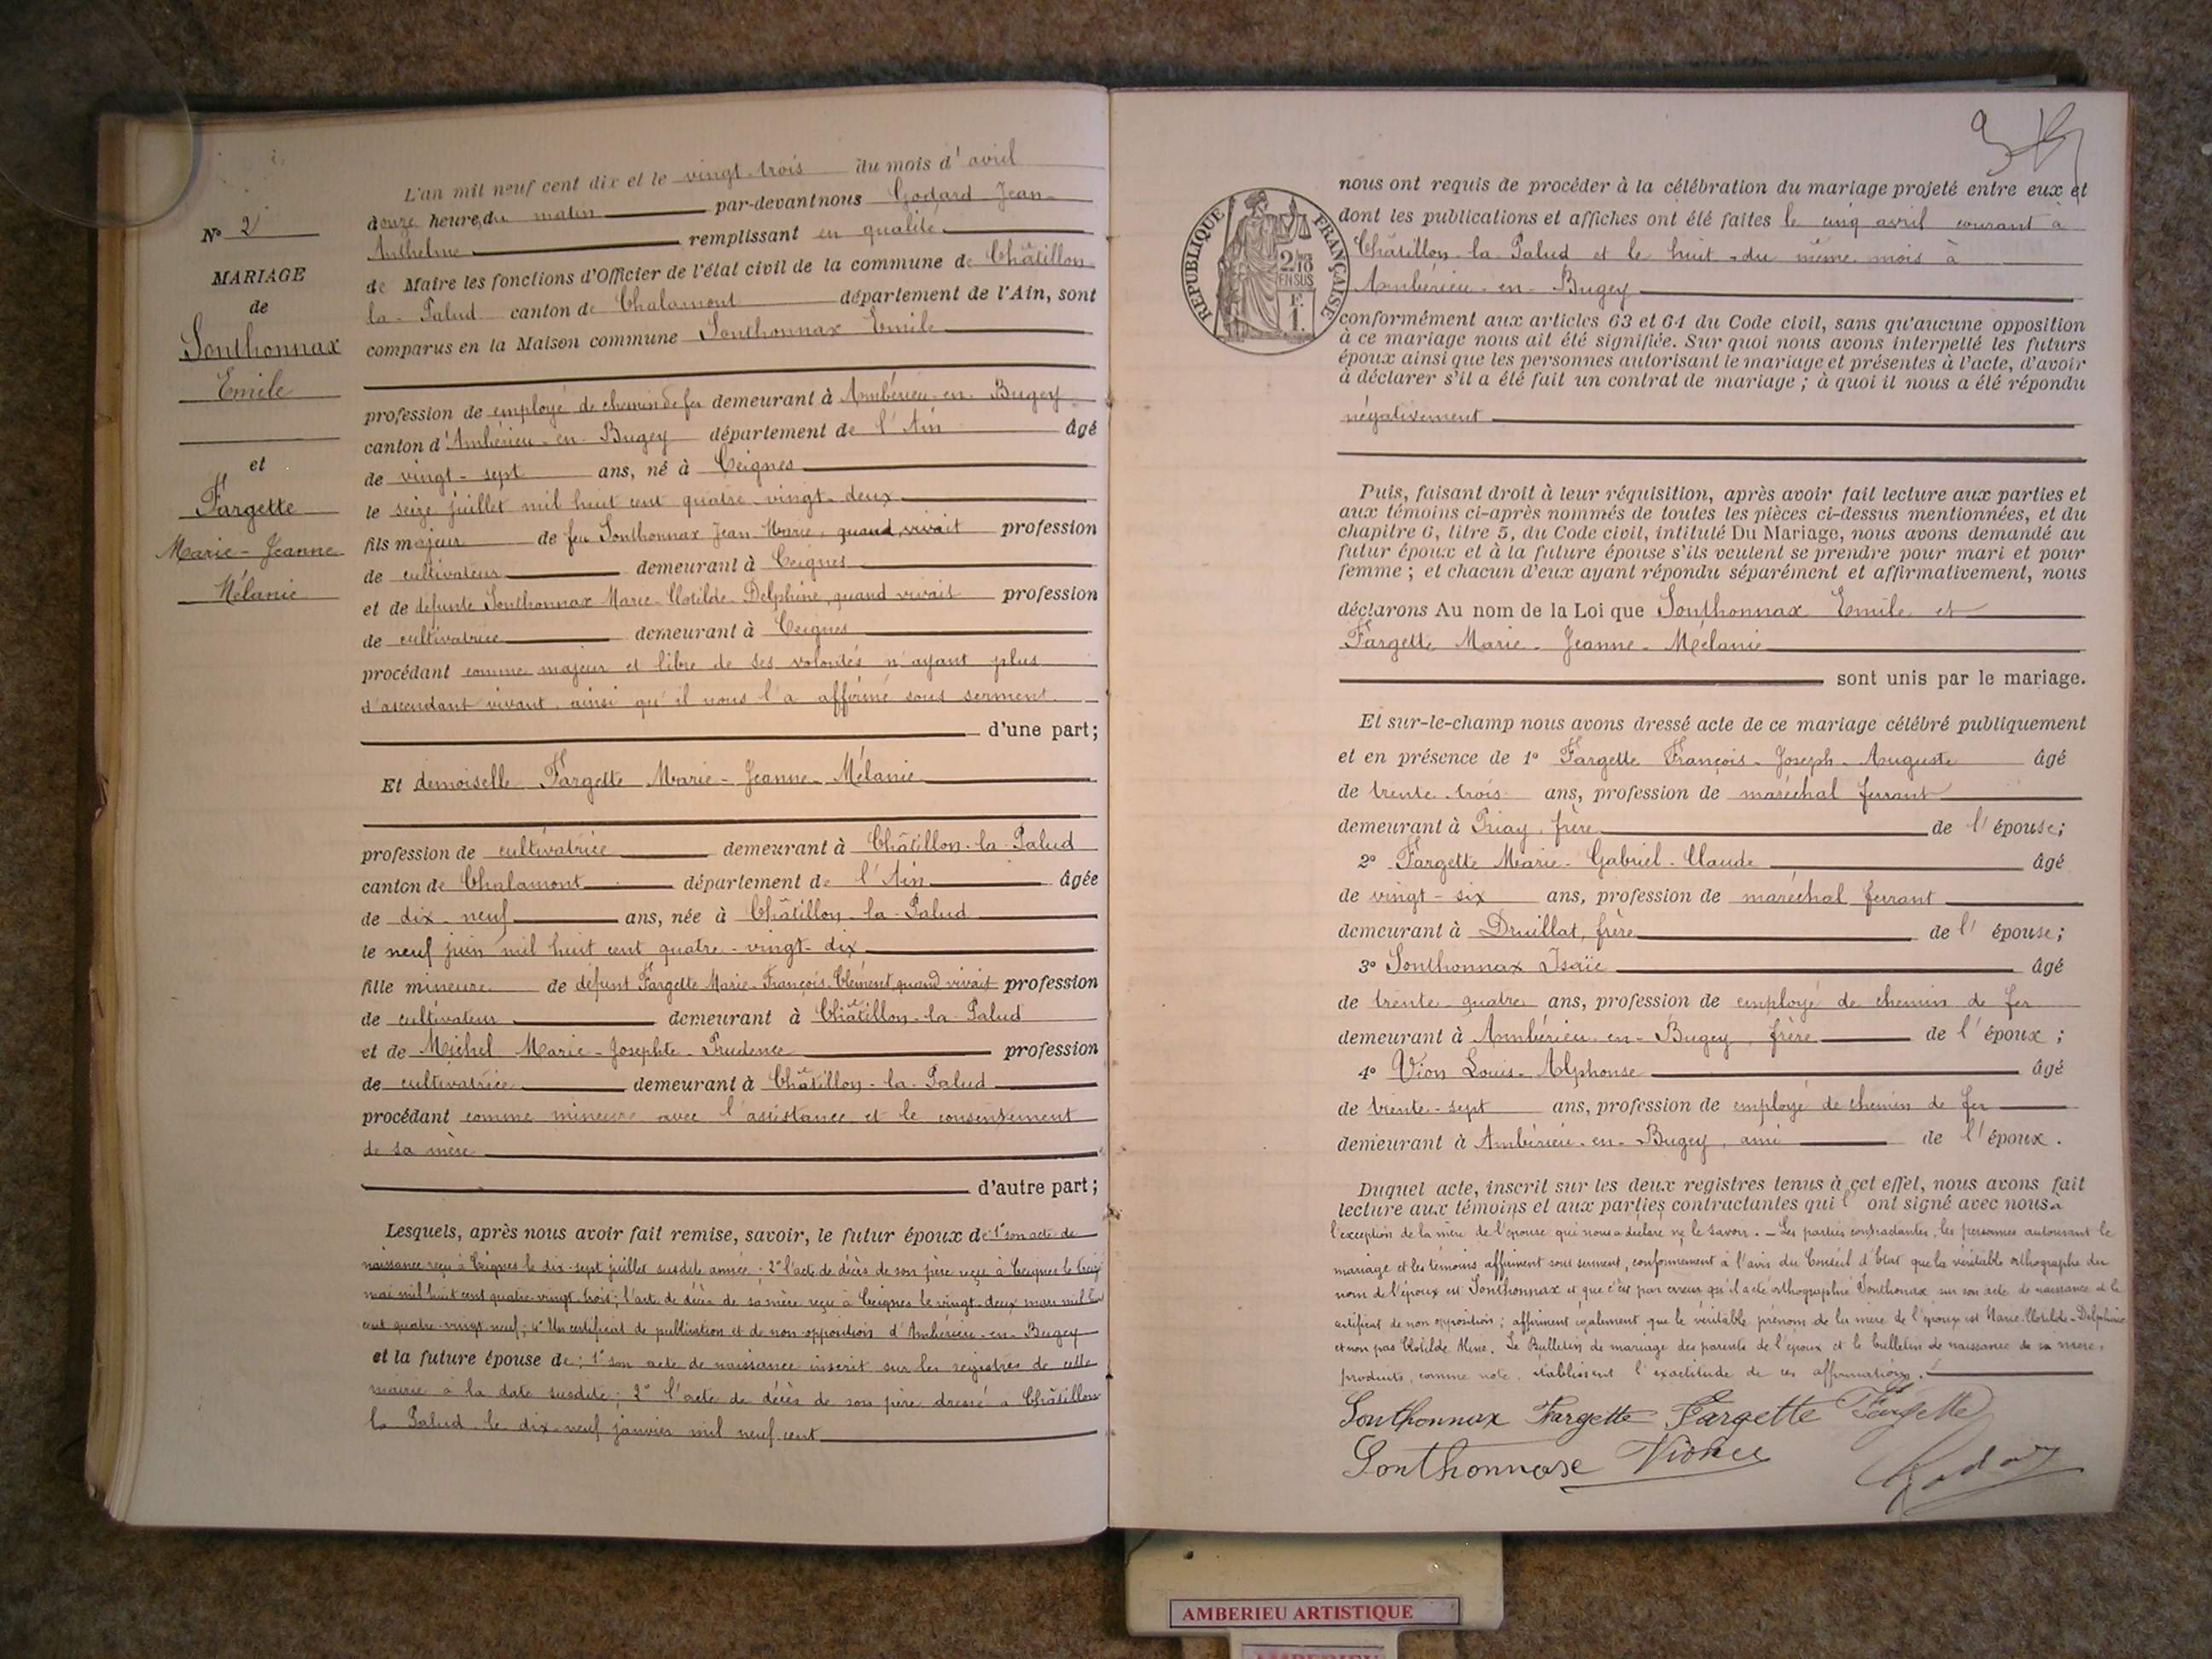 N° 2
MARIAGE
de
Sonthonnax
Emile
et
Fargette
Marie-Jeanne
Mélanie
L'an mil neuf cent dix et le vingt-trois du mois d'avril
à onze heure, du matin par-devant nous Godard Jean-
Anthelme remplissant en qualité
de Maire les fonctions d'Officier de l'état civil de la commune de Châtillon-
la-Palud canton de Chalamont département de l'Ain, sont
comparus en la Maison commune Sonthonnax Emile
profession de employé de chemin de fer demeurant à Ambérieu-en-Bugey
canton d'Ambérieu-en-Bugey département de l'Ain âgé
de vingt-sept ans, né à Ceignes
le seize juillet mil huit cent quatre-vingt-deux
fils majeur de feu Sonthonnax Jean-Marie, quand vivait profession
de cultivateur demeurant à Ceignes
et de défunte Sonthonnax Marie-Clotilde-Delphine, quand vivait profession
de cultivatrice demeurant à Ceignes
procédant comme majeur et libre de ses volontés n'ayant plus
d'ascendant vivant, ainsi qu'il nous l'a affirmé sous serment.
d'une part;
Et demoiselle Fargette Marie-Jeanne-Mélanie
profession de cultivatrice demeurant à Châtillon-la-Palud
canton de Chalamont département de l'Ain âgée
de dix-neuf ans, née à Châtillon-la-Palud
le neuf juin mil huit cent quatre-vingt-dix
fille mineure de défunt Fargette Marie-François-Clément, quand vivait profession
de cultivateur demeurant à Châtillon-la-Palud
et de Michel Marie-Josephte-Prudence profession
de cultivatrice demeurant à Châtillon-la-Palud
procédant comme mineure avec l'assistance et le consentement
de sa mère
d'autre part;
Lesquels, après nous avoir fait remise, savoir, le futur époux de 1° son acte de
naissance reçu à Ceignes le dix-sept juillet susdite année; 2° l'acte de décès de son père reçu à Ceignes le treize
mai mil huit cent quatre-vingt-trois; l'acte de décès de sa mère reçu à Ceignes le vingt-deux mars mil huit
cent quatre-vingt-neuf; 4° Un certificat de publication et de non-opposition d'Ambérieu-en-Bugey
et la future épouse de: 1° son acte de naissance inscrit sur les registres de cette
mairie à la date susdite; 2° l'acte de décès de son père dressé à Châtillon
la Palud le dix-neuf janvier mil neuf cent
REPUBLIQUE FRANÇAISE
2/10
EN SUS
F.
1.
nous ont requis de procéder à la célébration du mariage projeté entre eux et
dont les publications et affiches ont été faites le cinq avril courant à
Châtillon-la-Palud et le huit du même mois à
Ambérieu-en-Bugey
conformément aux articles 63 et 64 du Code civil, sans qu'aucune opposition
à ce mariage nous ait été signifiée. Sur quoi nous avons interpellé les futurs
époux ainsi que les personnes autorisant le mariage et présentes à l'acte, d'avoir
à déclarer s'il a été fait un contrat de mariage; à quoi il nous a été répondu
négativement
Puis, faisant droit à leur réquisition, après avoir fait lecture aux parties et
aux témoins ci-après nommés de toutes les pièces ci-dessus mentionnées, et du
chapitre 6, titre 5, du Code civil, intitulé Du Mariage, nous avons demandé au
futur époux et à la future épouse s'ils veulent se prendre pour mari et pour
femme; et chacun d'eux ayant répondu séparément et affirmativement, nous
déclarons Au nom de la Loi que Sonthonnax Emile et
Fargette Marie-Jeanne-Mélanie
sont unis par le mariage.
Et sur-le-champ nous avons dressé acte de ce mariage célébré publiquement
et en présence de 1° Fargette François-Joseph-Auguste âgé
de trente-trois ans, profession de maréchal ferrant
demeurant à Priay, frère de l'épouse;
2° Fargette Marie-Gabriel-Claude âgé
de vingt-six ans, profession de maréchal ferrant
demeurant à Druillat, frère de l'épouse;
3° Sonthonnax Isaïe âgé
de trente-quatre ans, profession de employé de chemin de fer
demeurant à Ambérieu-en-Bugey, frère de l'époux;
4° Vion Louis-Alphonse âgé
de trente-sept ans, profession de employé de chemin de fer
demeurant à Ambérieu-en-Bugey, ami de l'époux.
Duquel acte, inscrit sur les deux registres tenus à cet effet, nous avons fait
lecture aux témoins et aux parties contractantes qui l'ont signé avec nous à
l'exception de la mère de l'épouse qui nous a déclaré ne le savoir. — Les parties contractantes, les personnes autorisant le
mariage et les témoins affirment sous serment, conformément à l'avis du Conseil d'Etat que la véritable orthographe du
nom de l'époux est Sonthonnax et que c'est par erreur qu'il a été orthographié Sonthonax sur son acte de naissance et le
certificat de non opposition; affirment également que le véritable prénom de la mère de l'époux est Marie-Clotilde-Delphine
et non pas Clotilde Mine. Le Bulletin de mariage des parents de l'époux et le bulletin de naissance de sa mère,
produits, comme note, établissent l'exactitude de ces affirmations.
Sonthonnax Fargette Fargette Fargette
Sonthonnax Vion Godard
AMBERIEU ARTISTIQUE
AMBERIEU